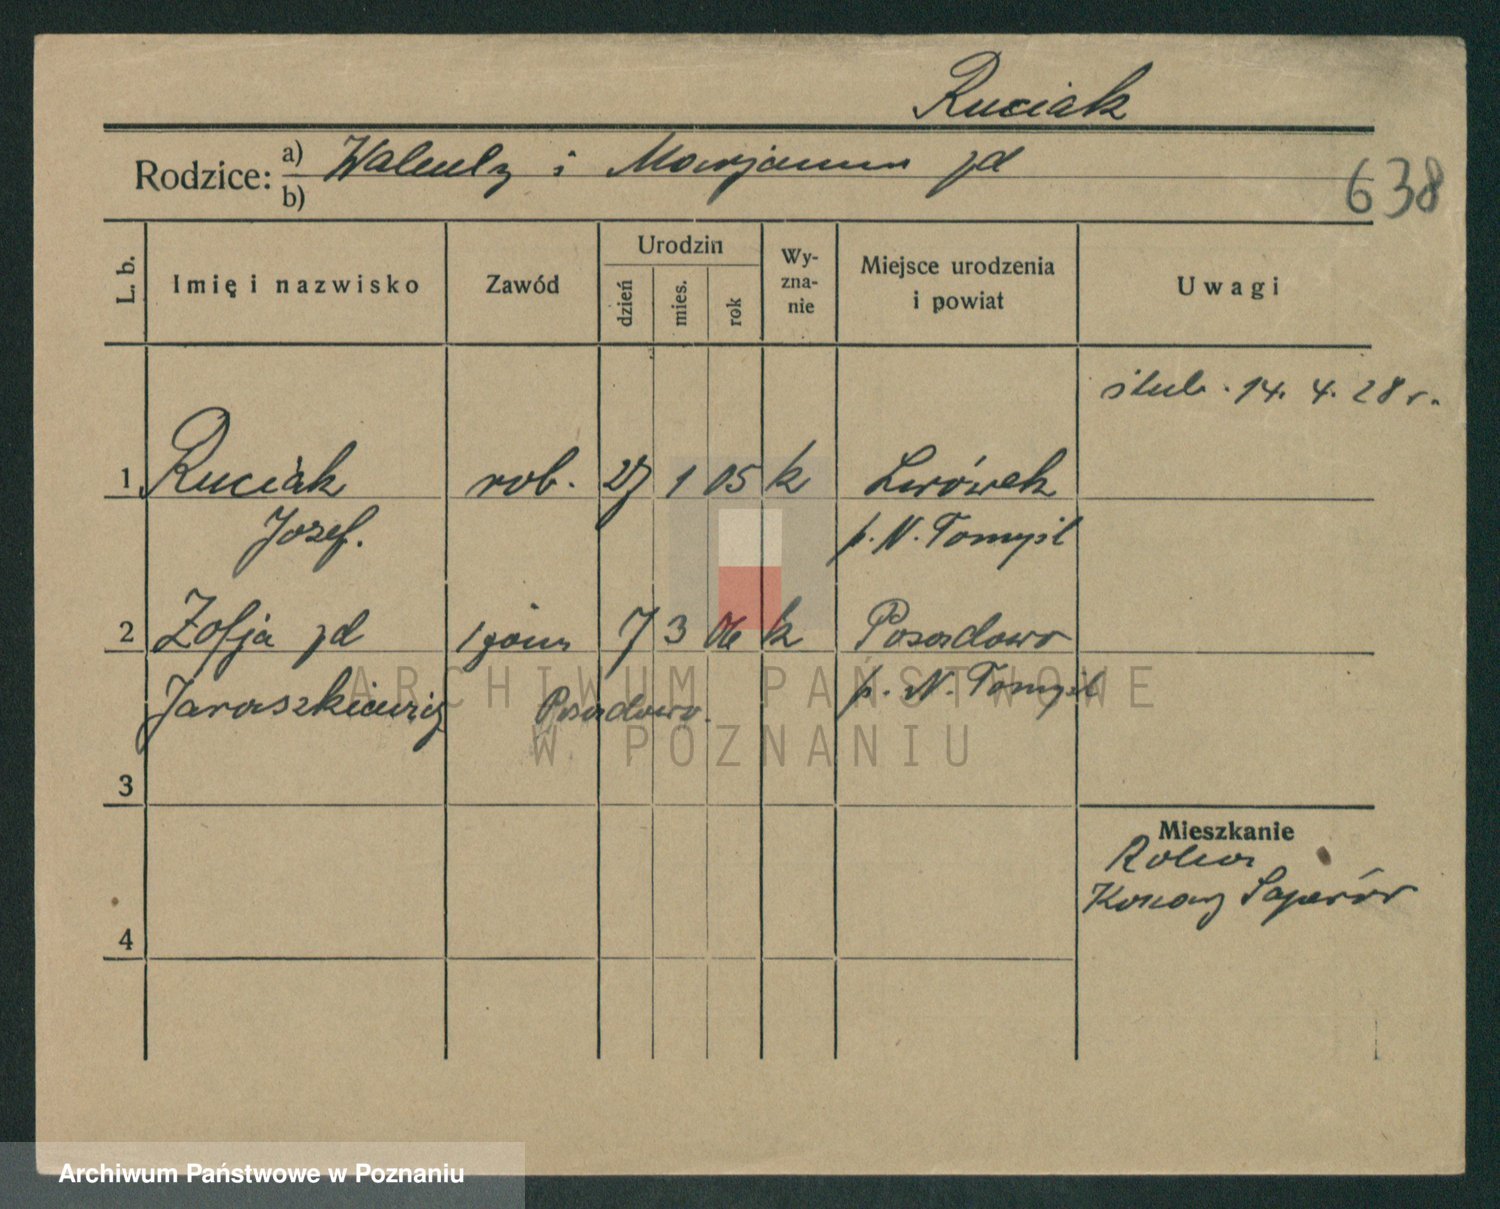 Ruciak
Rodzice: a) Walenty i Marjanna zd
b)
638
L. b.
Imię i nazwisko
Zawód
Urodzin
dzień
mies.
rok
Wy-
zna-
nie
Miejsce urodzenia
i powiat
Uwagi
ślub. 14. 4. 28 r.
1 Ruciak rob. 27 1 05 k Lwówek
Józef. p. N. Tomyśl
2 Zofja zd 7 3 06 k Posadowo
Jaraszkiewicz Posadowo. p. N. Tomyśl
3
Mieszkanie
Koszary Saperów
4
ARCHIWUM PAŃSTWOWE
W POZNANIU
Archiwum Państwowe w Poznaniu